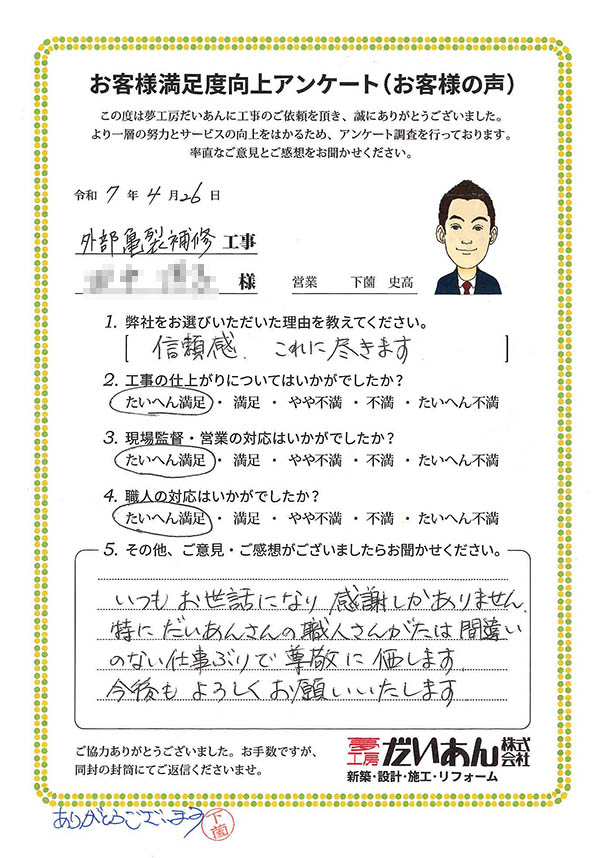 お客様満足度向上アンケート（お客様の声）
この度は夢工房だいあんに工事のご依頼を頂き、誠にありがとうございました。
より一層の努力とサービスの向上をはかるため、アンケート調査を行っております。
率直なご意見とご感想をお聞かせください。
令和 7 年 4 月 26 日
外部亀裂補修 工事
様 営業 下薗 史高
1. 弊社をお選びいただいた理由を教えてください。
[ 信頼感、これに尽きます ]
2. 工事の仕上がりについてはいかがでしたか？
たいへん満足 ・ 満足 ・ やや不満 ・ 不満 ・ たいへん不満
3. 現場監督・営業の対応はいかがでしたか？
たいへん満足 ・ 満足 ・ やや不満 ・ 不満 ・ たいへん不満
4. 職人の対応はいかがでしたか？
たいへん満足 ・ 満足 ・ やや不満 ・ 不満 ・ たいへん不満
5. その他、ご意見・ご感想がございましたらお聞かせください。
いつもお世話になり 感謝しかありません、
特にだいあんさんの職人さんがたは間違い
のない仕事ぶりで尊敬に価します。
今後もよろしくお願いいたします
ご協力ありがとうございました。お手数ですが、
同封の封筒にてご返信くださいませ。
夢工房 だいあん 株式会社
新築・設計・施工・リフォーム
ありがとうございます 下薗